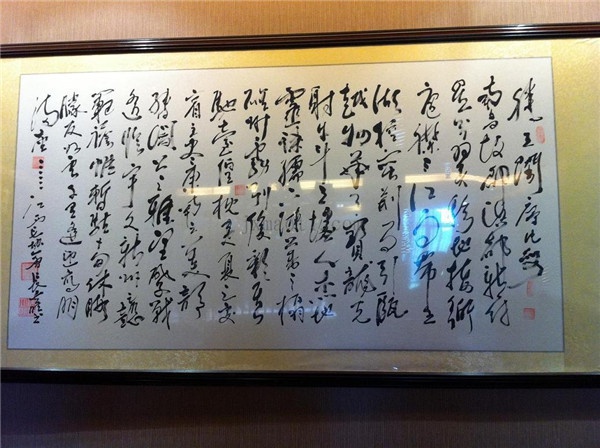 滕王閣序
南昌故郡洪都新府
星分翼軫地接衡
廬襟三江而帶五
湖控蠻荆而引甌
越物華天寶龍光
射牛斗之墟人杰地
靈徐孺下陳蕃之榻
雄州霧列俊彩星
馳臺隍枕夷夏之交
賓主盡東南之美都
督閻公之雅望棨戟
遥臨宇文新州之懿
範襜帷暫駐十旬休暇
勝友如雲千里逢迎高朋
滿座……